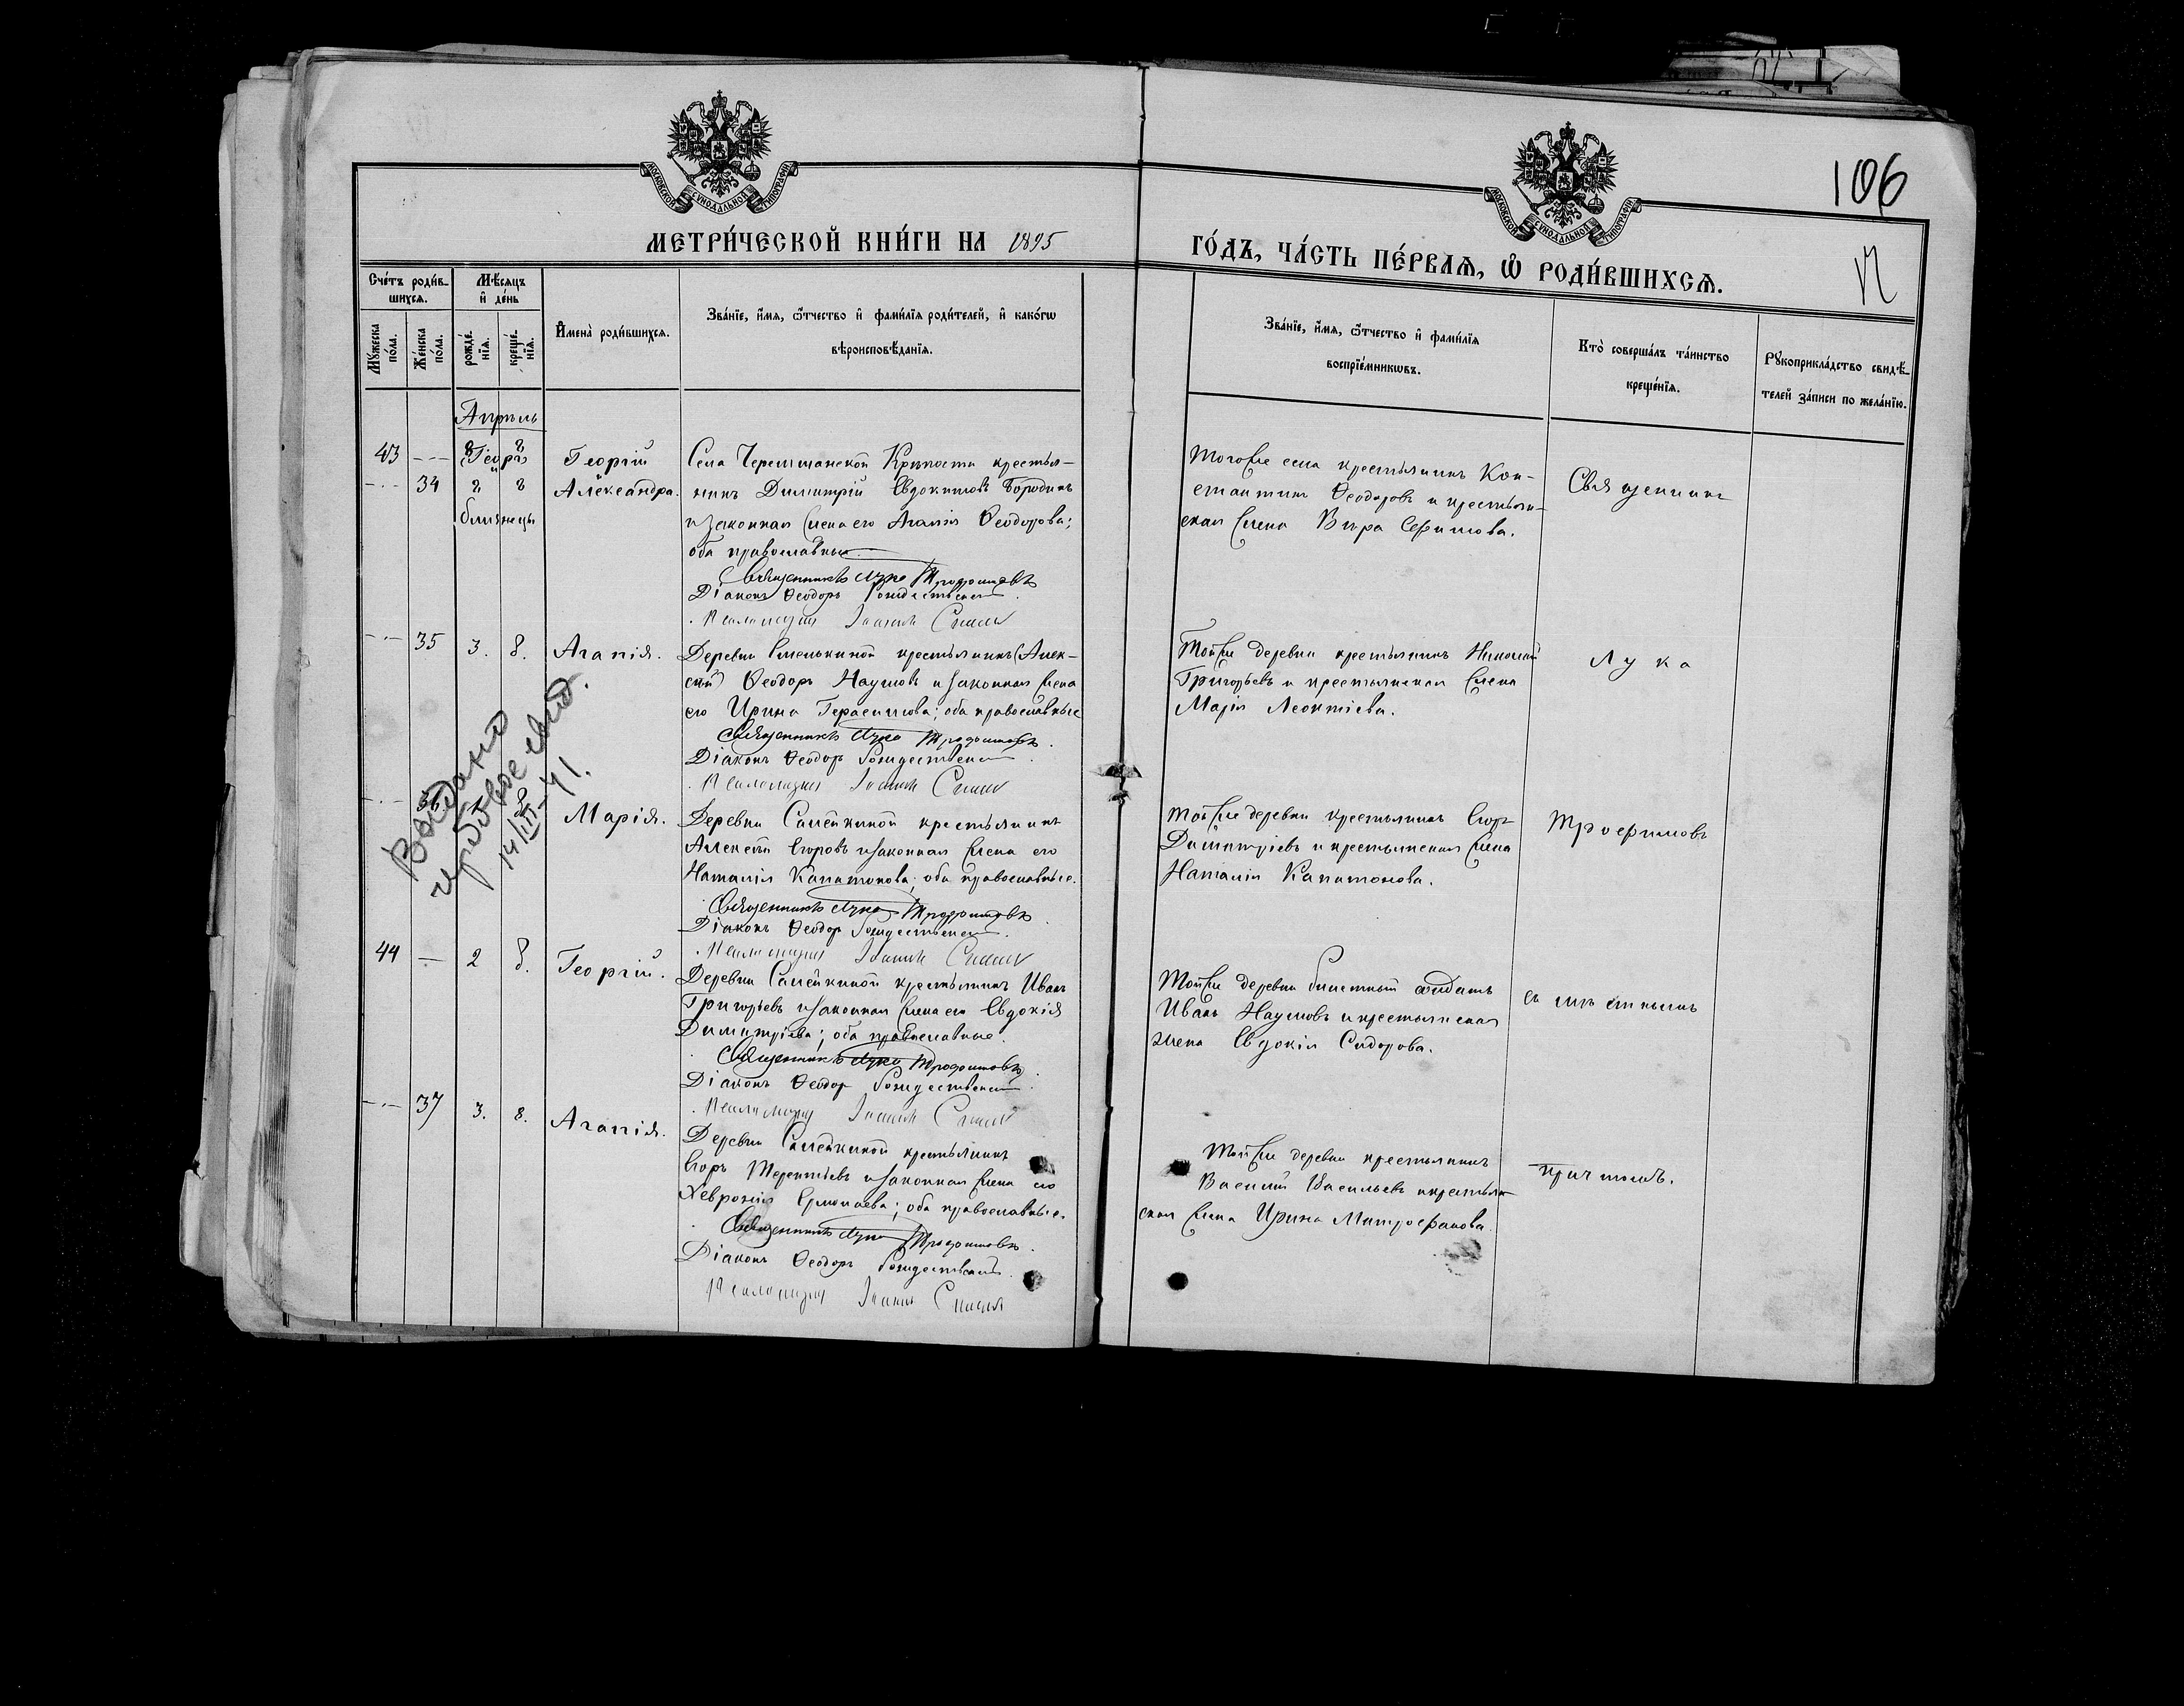 106
МОСКОВСКОЙ СѴНОДАЛЬНОЙ ТИПОГРАФІИ
МОСКОВСКОЙ СѴНОДАЛЬНОЙ ТИПОГРАФІИ
МЕТРИ́ЧЕСКОЙ КНИ́ГИ НА 1895
ГО́ДЪ, ЧА́СТЬ ПЕ́РВАѦ, Ѽ РОДИ́ВШИХСѦ.
Сче́тъ роди́в-
шихсѧ.
Мѣ́сѧцъ
и҆ де́нь
Мꙋ́жеска
по́ла.
Же́нска
по́ла.
рожде́-
нїѧ.
креще́-
нїѧ.
И҆мена̀ роди́вшихсѧ.
Зва́нїе, и҆́мѧ, ѻ҆́тчество и҆ фами́лїѧ роди́телей, и҆ како́гѡ
вѣроисповѣ́данїѧ.
Зва́нїе, и҆́мѧ, ѻ҆́тчество и҆ фами́лїѧ
воспрїе́мникѡвъ.
Кто̀ соверша́лъ та́инство
креще́нїѧ.
Рꙋкоприкла́дство свидѣ́-
телей за́писи по жела́нїю.
Апрѣль
43 2 8 Георгій
34 2 8 Александра.
близнецы
Села Черемшанской Крѣпости крестья-
нинъ Димитрій Евдокимовъ Бородинъ
и законная жена его Агапія Ѳеодорова;
оба православные.
Священникъ Лука Трофимовъ
Діаконъ Ѳеодоръ Рождественскій.
Псаломщикъ Іоаннъ
Того же села крестьянинъ Кон-
стантинъ Ѳеодоровъ и крестьян-
ская жена Вѣра Ефимова.
Священникъ
35 3. 8. Агапія.
Деревни Емелькиной крестьянинъ (Алек-
сѣй) Ѳеодоръ Наумовъ и законная жена
его Ирина Герасимова; оба православные
Священникъ Лука Трофимовъ.
Діаконъ Ѳеодоръ Рождественскій.
Псаломщикъ Іоаннъ
Той же деревни крестьянинъ Николай
Григорьевъ и крестьянская жена
Марія Леонтіева.
Лука
Выдано
гербовое свид.
14/III-41.
36 8 Марія.
Деревни Семейкиной крестьянинъ
Алексѣй Егоровъ и законная жена его
Наталія Капитонова; оба православные.
Священникъ Лука Трофимовъ.
Діаконъ Ѳеодоръ Рождественскій.
Псаломщикъ Іоаннъ
Той же деревни крестьянинъ Егоръ
Димитріевъ и крестьянская жена
Наталія Капитонова.
Трофимовъ
44 — 2 8. Георгій.
Деревни Семейкиной крестьянинъ Иванъ
Григорьевъ и законная жена его Евдокія
Димитріева; оба православные.
Священникъ Лука Трофимовъ.
Діаконъ Ѳеодоръ Рождественскій.
Псаломщикъ Іоаннъ
Той же деревни билетный солдатъ
Иванъ Наумовъ и крестьянская
жена Евдокія Сидорова.
съ мѣстнымъ
37 3. 8. Агапія.
Деревни Семейкиной крестьянинъ
Егоръ Терентьевъ и законная жена его
Хевронія Ермолаева; оба православные.
Священникъ Лука Трофимовъ.
Діаконъ Ѳеодоръ Рождественскій.
Псаломщикъ Іоаннъ
Той же деревни крестьянинъ
Василій Васильевъ и крестьян-
ская жена Ирина Митрофанова.
причтомъ.